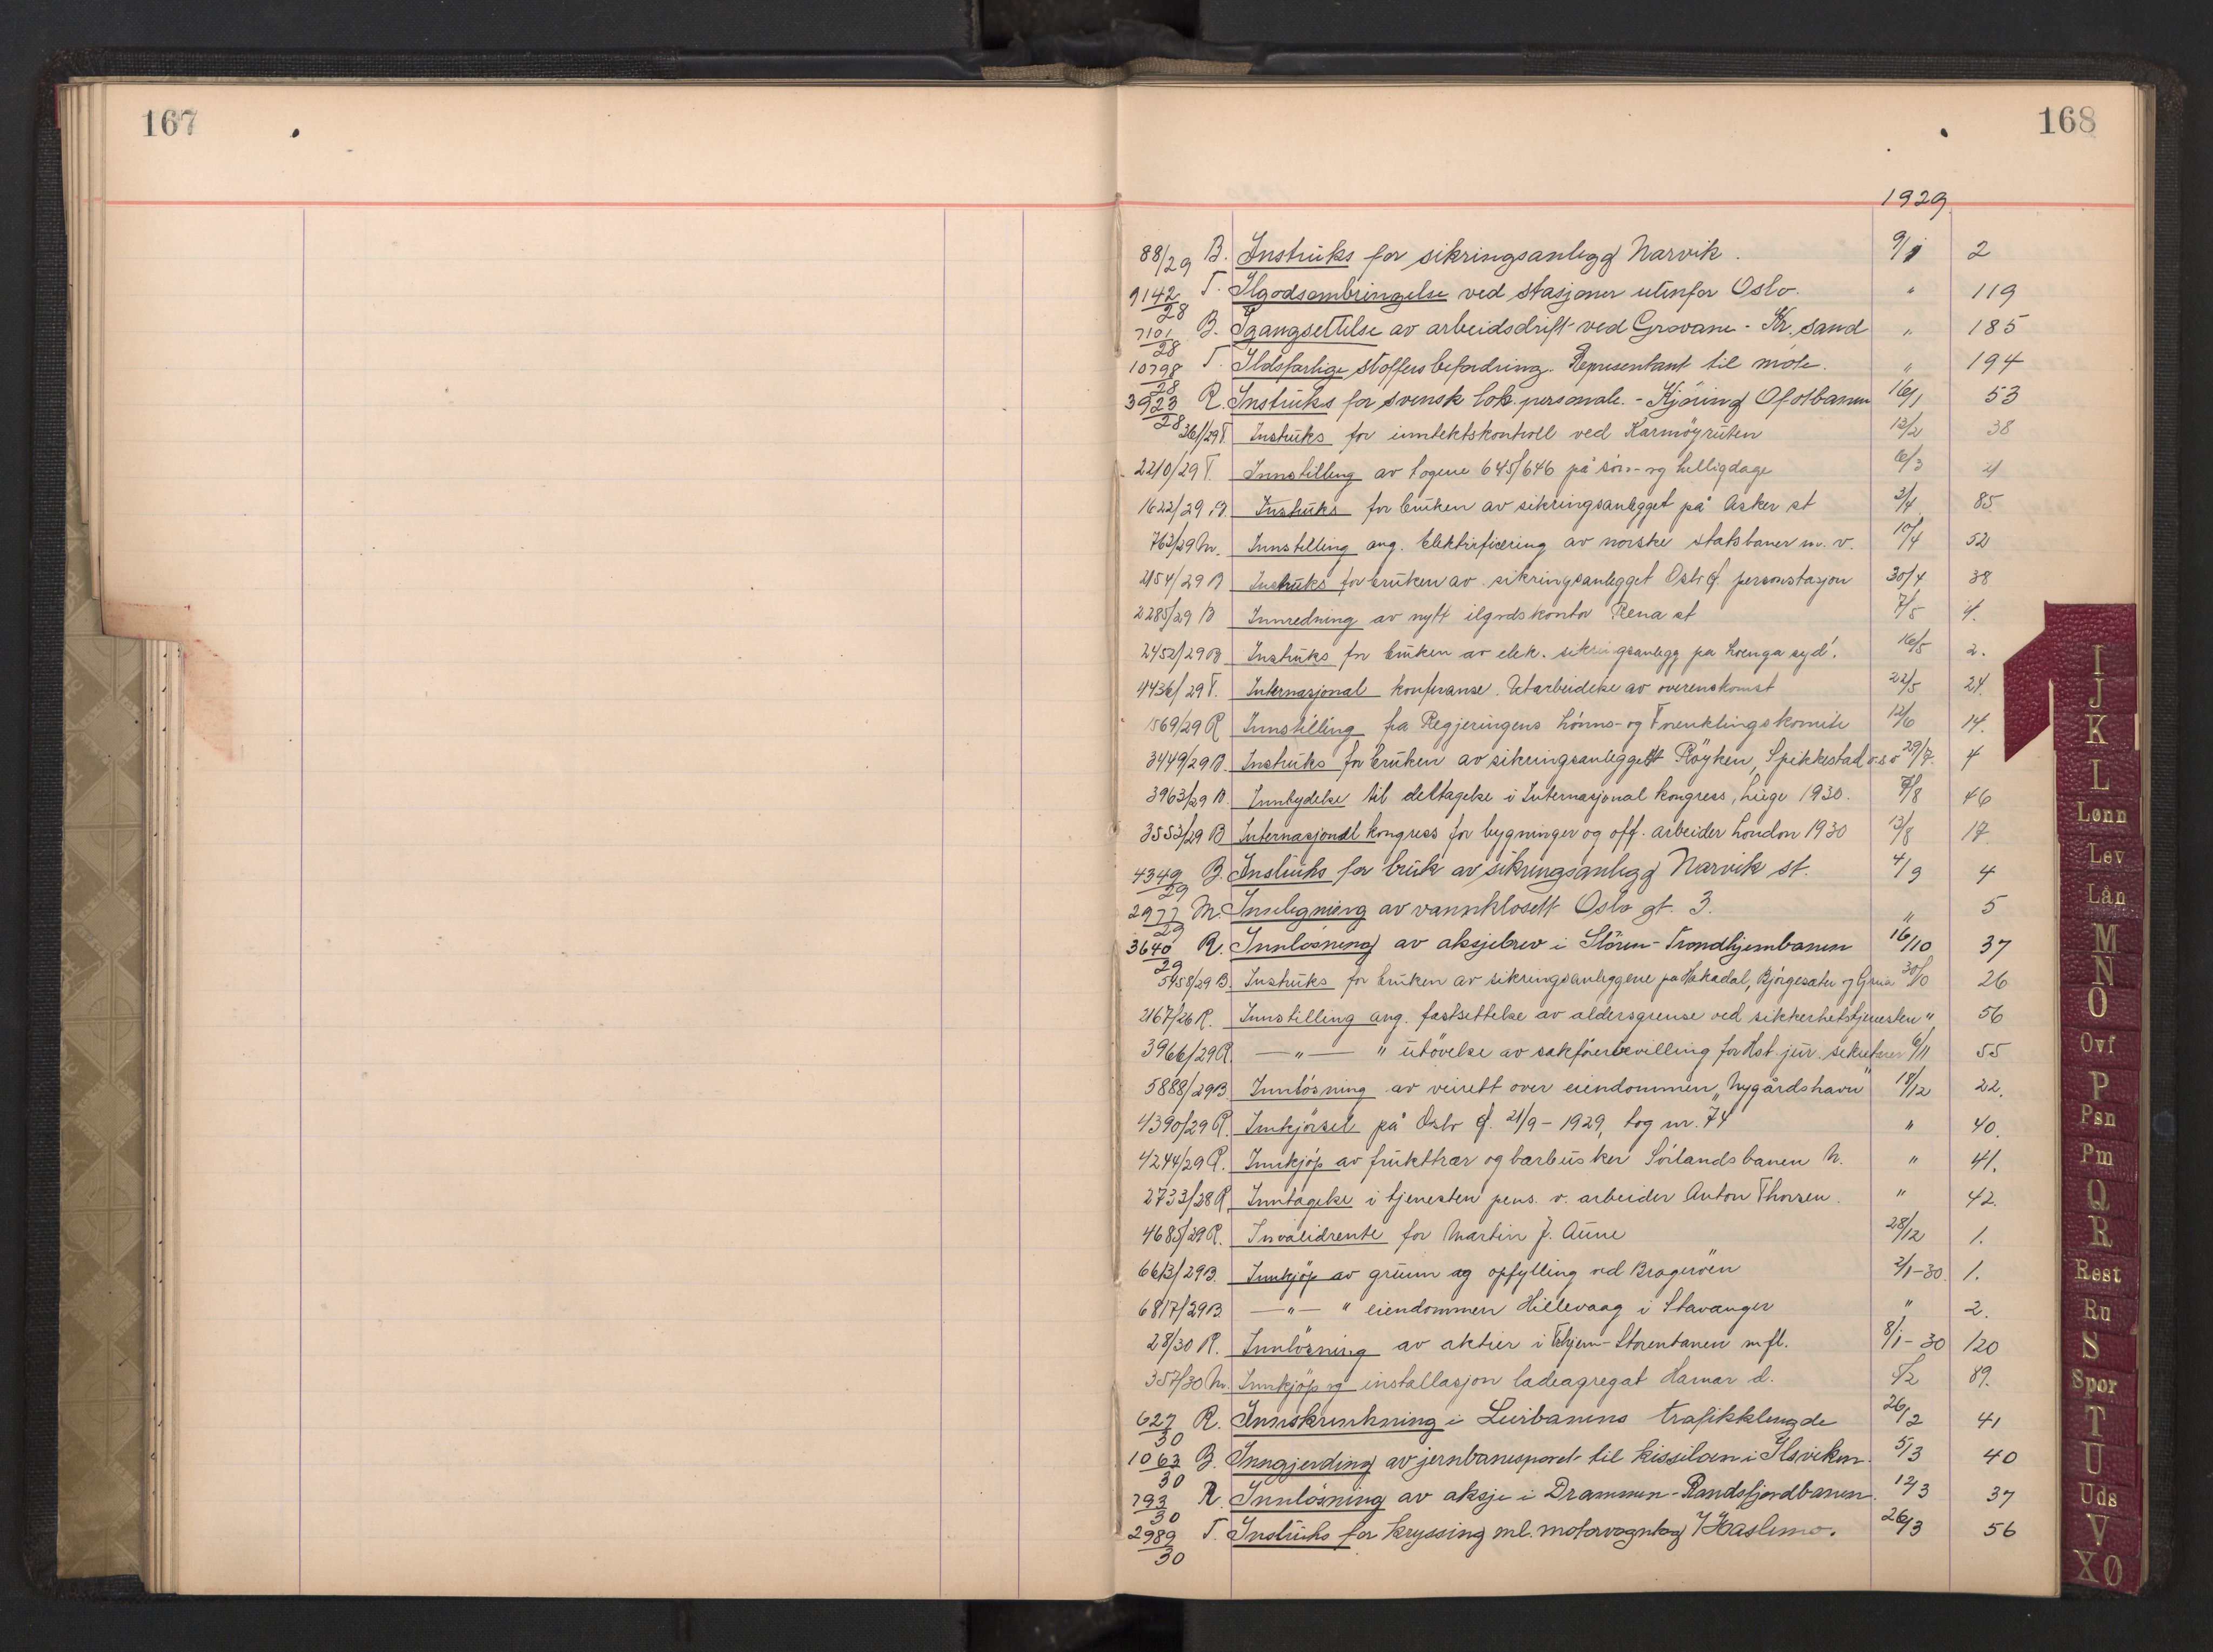 167
168
1929
88/29 B. Instruks for sikringsanlegg Narvik. 9/1 2
9142/28 T. Ilgodsombringelse ved stasjoner utenfor Oslo. " 119
7101/28 B. Igangsettelse av arbeidsdrift ved Grovane - Kr.sand " 185
10798/28 T. Ildsfarlige stoffers befordring. Representant til møte. " 194
3923/28 R. Instruks for svensk lok. personale. - Kjøring Ofotbanen 16/1 53
361/29 T. Instruks for inntektskontroll ved Karmøyruten 12/2 38
2210/29 T. Innstilling av togene 645/646 på søn- og helligdage 6/3 4
1622/29 B. Instruks for bruken av sikringsanlegget på Asker st 3/4 85
763/29 M. Innstilling ang. Elektrifisering av norske statsbaner m.v. 10/4 52
2154/29 B Instruks for bruken av sikringsanlegget Oslo Ø. personstasjon 30/4 38
2285/29 B Innredning av nytt ilgodskontor Rena st 7/5 4.
2452/29 B Instruks for bruken av elek. sikringsanlegg på Loenga syd. 16/5 2.
4436/29 T. Internasjonal konferanse. Utarbeidelse av overenskomst 22/5 24.
1569/29 R Innstilling fra Regjeringens Lønns- og Forenklingskomite 12/6 14.
3449/29 B. Instruks for bruken av sikringsanlegget Røyken, Spikkestad o s v 29/7. 4
3963/29 B. Innbydelse til deltagelse i Internasjonal kongress, Liege 1930. 7/8 46
3553/29 B Internasjonal kongress for bygninger og off. arbeider London 1930 13/8 17
4349/29 B. Instruks for bruk av sikringsanlegg Narvik st. 4/9 4
2977/29 M. Innlegning av vannklosett Oslo gt. 3. " 5
3640/29 R. Innløsning av aksjebrev i Støren-Trondhjembanen 16/10 37
5958/29 B. Instruks for bruken av sikringsanleggene på Hakadal, Bjørgesæter og Grua 30/10 26
2167/26 R. Innstilling ang. fastsettelse av aldersgrense ved sikkerhetstjenesten " 56
3966/29 R. —"— " utøvelse av sakførerbevilling for Hst. jur. sekretærer 6/11 55
5888/29 B. Innløsning av veirett over eiendommen „Nygårdshavn" 18/12 22.
4390/29 R. Innkjørsel på Oslo Ø. 21/9 - 1929, tog nr. 74 " 40.
4244/29 R. Innkjøp av frukttrær og bærbusker Sørlandsbanen N. " 41.
2733/28 R. Inntagelse i tjenesten pens. v. arbeider Anton Thorsen. " 42.
4685/29 R. Invalidrente for Martin J. Aune 28/12 1.
6613/29 B. Innkjøp av grunn og opfylling ved Bragerøen 2/1-30. 1.
6817/29 B. —"— " eiendommen Hillevaag i Stavanger " 2.
28/30 R. Innløsning av aktier i Thjem-Størenbanen mfl. 8/1-30 120
357/30 M. Innkjøp og installasjon ladeagregat Hamar d. 5/2 89.
627/30 R. Innskrenkning i Lierbanens trafikklengde 26/2 41
1063/30 B. Inngjerding av jernbanesporet til kissiloen i Ilsviken. 5/3 40
793/30 R. Innløsning av aksje i Drammen-Randsfjordbanen. 12/3 37
2989/30 T. Instruks for kryssing ml. motorvogntog i Haslemo. 26/3 56
I
J
K
L
Lønn
Lev
Lån
M
N
O
Ovf
P
Psn
Pm
Q
R
Rest
Ru
S
Spor
T
U
Uds
V
XØ